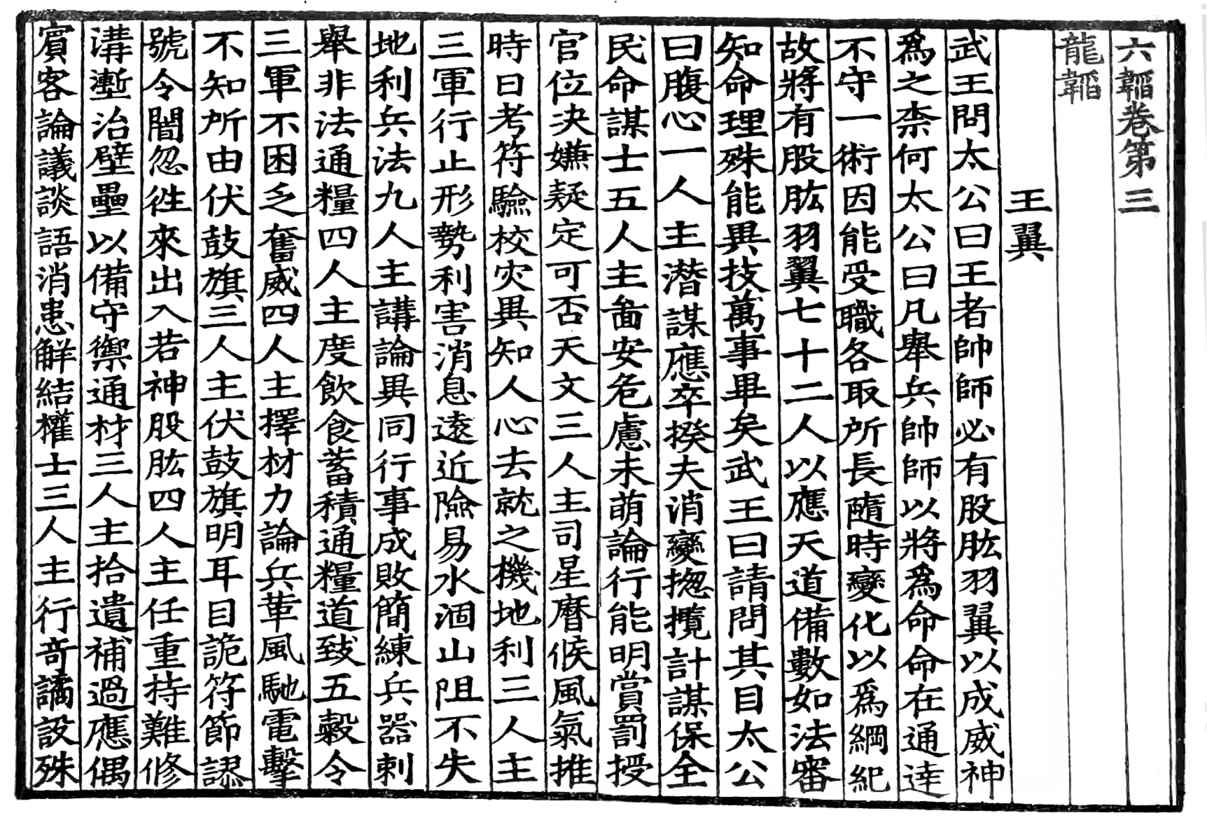 六韜卷第三
龍韜
王翼
武王問太公曰王者帥師必有股肱羽翼以成威神
爲之柰何太公曰凡舉兵帥師以將爲命命在通達
不守一術因能受職各取所長隨時變化以爲綱紀
故將有股肱羽翼七十二人以應天道備數如法審
知命理殊能異技萬事畢矣武王曰請問其目太公
曰腹心一人主潛謀應卒揆天消變揔攬計謀保全
民命謀士五人主啚安危慮未萌論行能明賞罰授
官位决嫌疑定可否天文三人主司星曆候風氣推
時日考符驗校灾異知人心去就之機地利三人主
三軍行止形勢利害消息遠近險易水涸山阻不失
地利兵法九人主講論異同行事成敗簡練兵器刺
舉非法通糧四人主度飲食蓄積通糧道致五穀令
三軍不困乏奮威四人主擇材力論兵革風馳電擊
不知所由伏鼓旗三人主伏鼓旗明耳目詭符節謬
號令闇忽徃來出入若神股肱四人主任重持難修
溝壍治壁壘以備守禦通材三人主拾遺補過應偶
賓客論議談語消患解結權士三人主行竒譎設殊